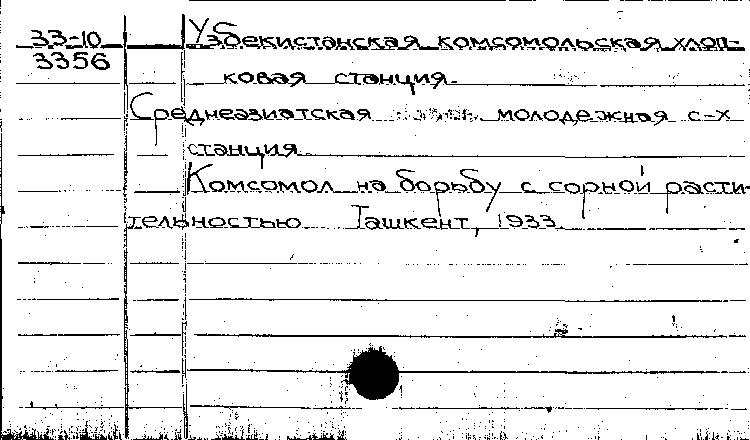 33-10 Узбекистанская комсомольская хлоп-
3356
ковая станция.
Среднеазиатская молодежная с-х
станция.
Комсомол на борьбу с сорной расти-
тельностью Ташкент, 1933.